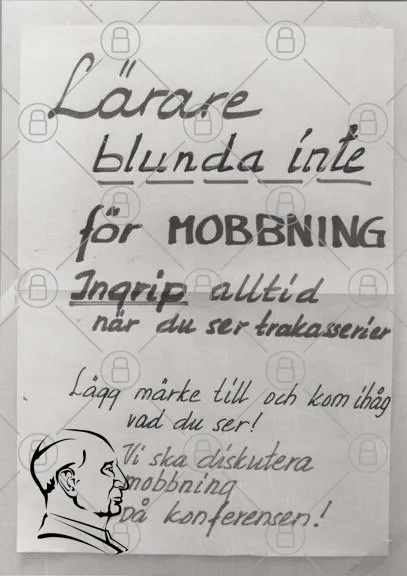 Lärare
blunda inte
för MOBBNING
Ingrip alltid
när du ser trakasserier
Lägg märke till och kom ihåg
vad du ser!
Vi ska diskutera
mobbning
på konferensen!